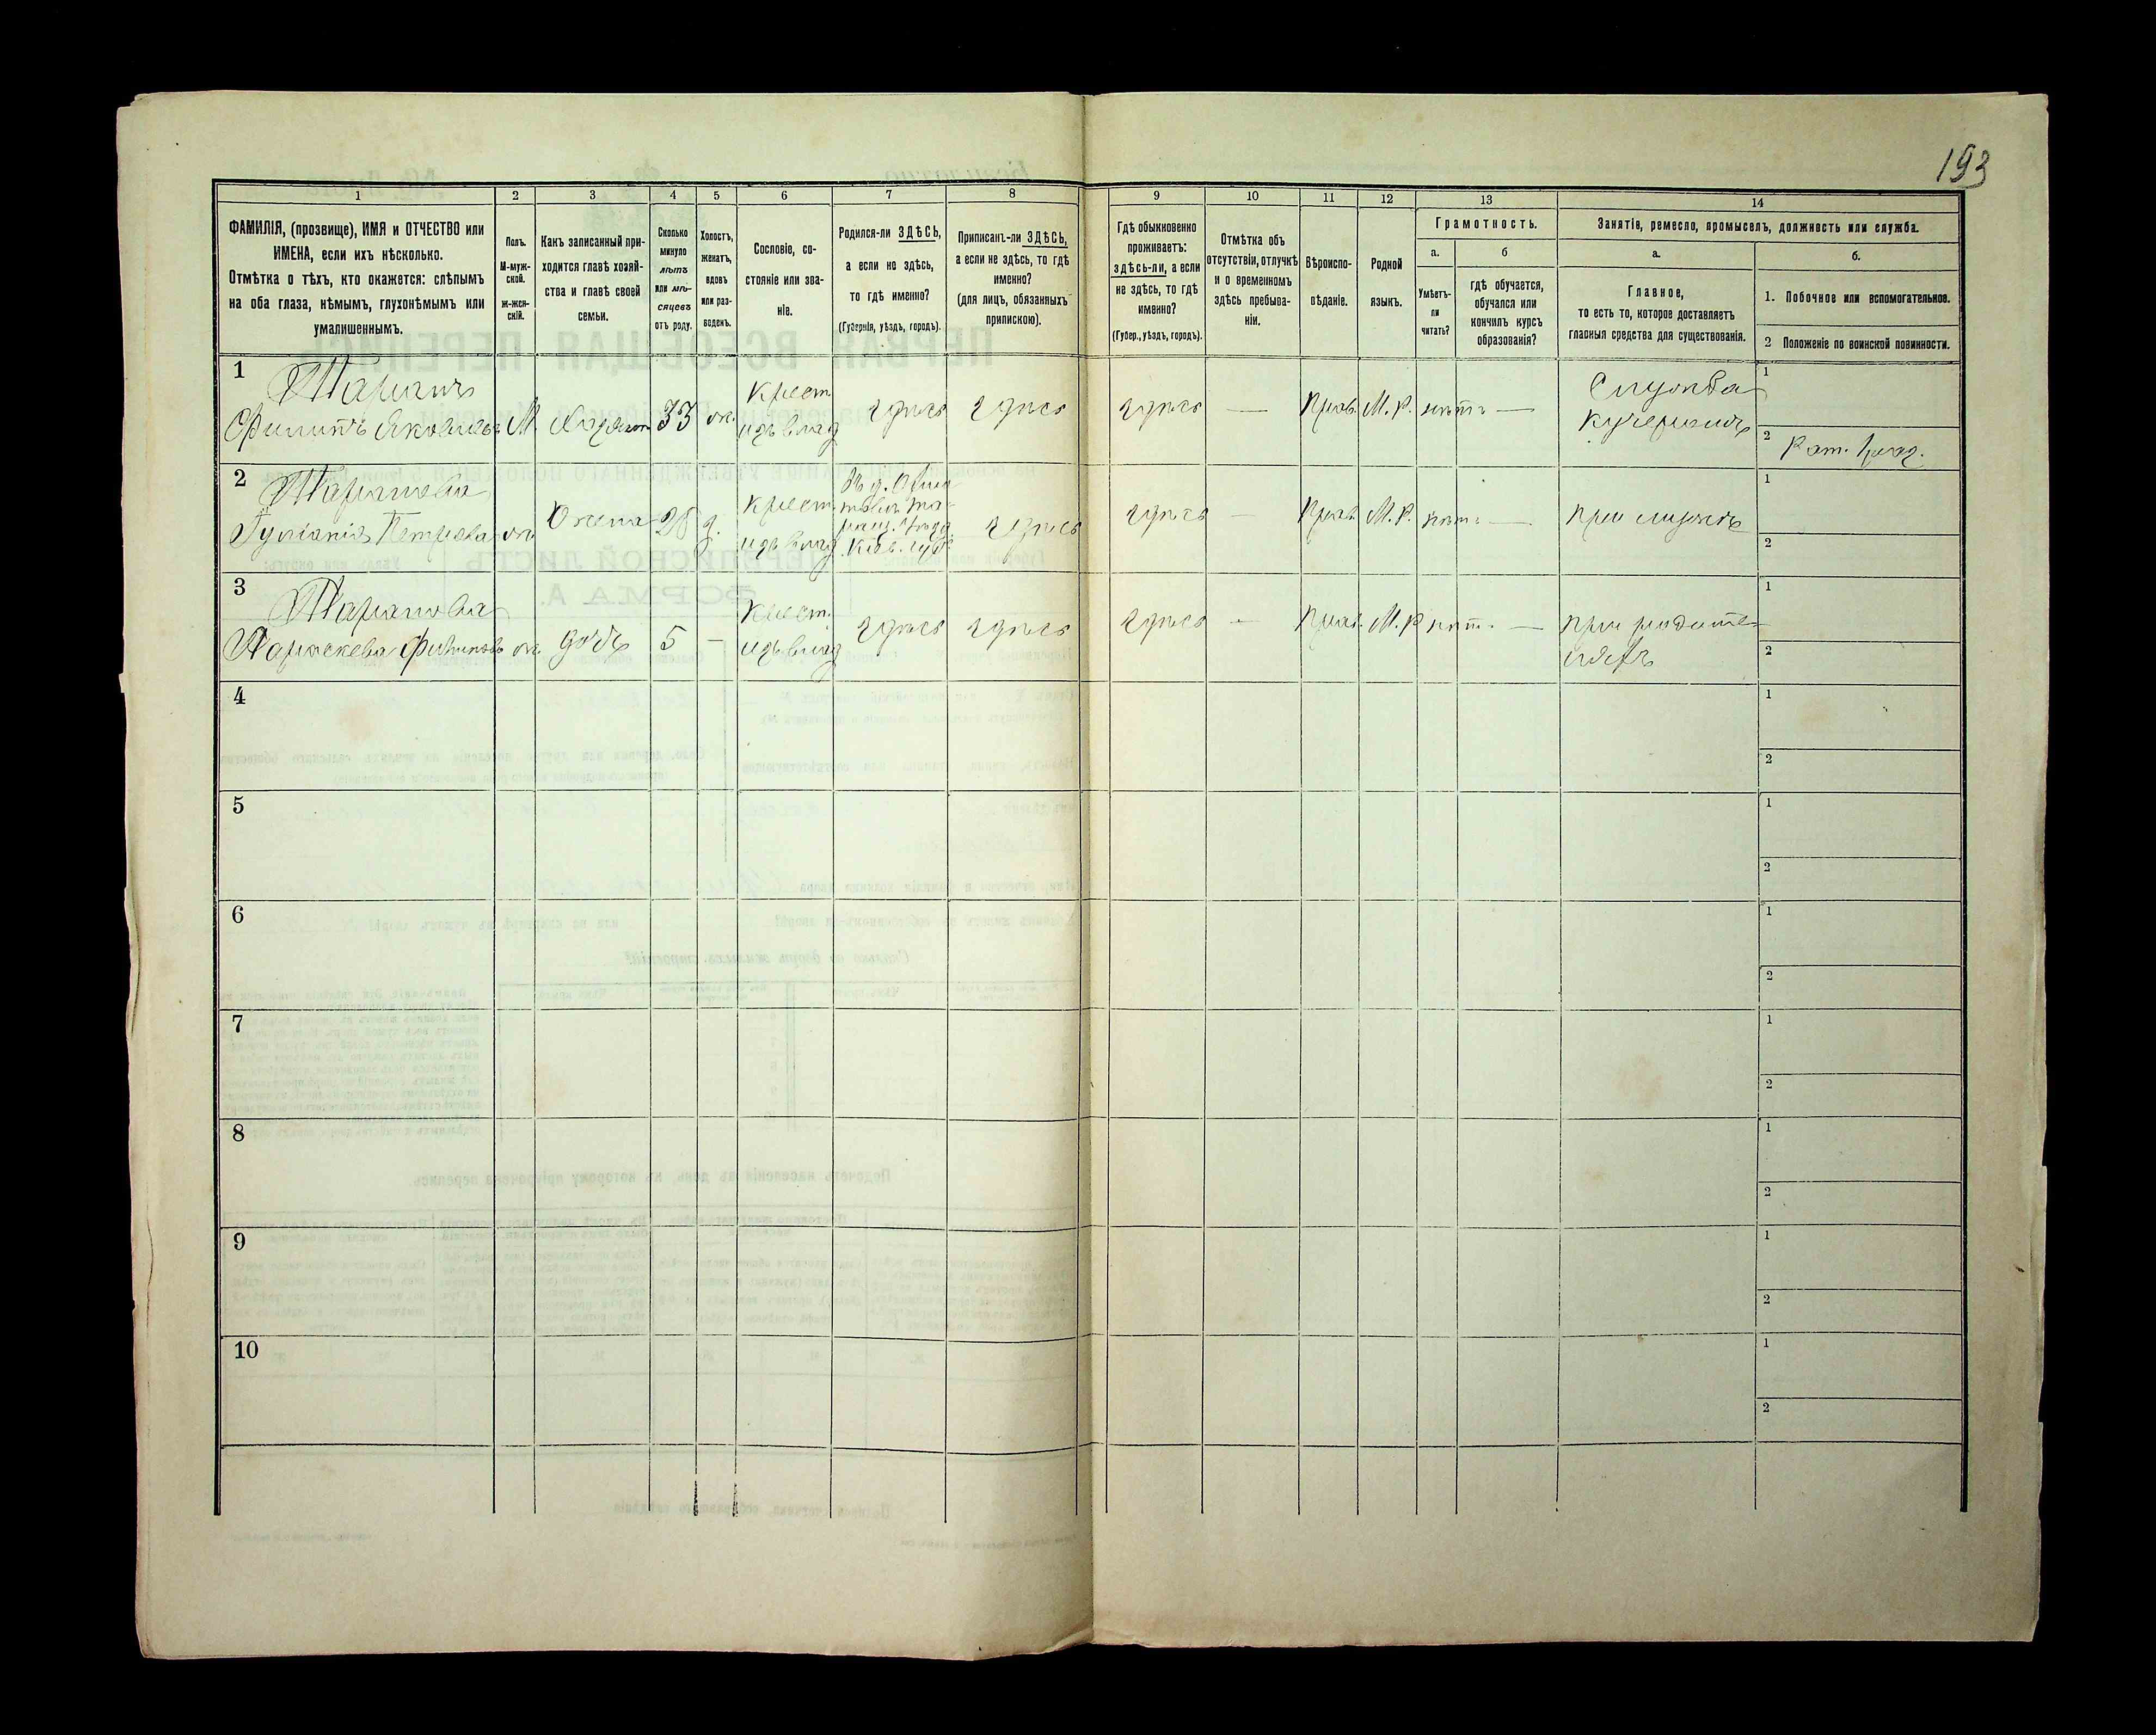 193
1
2
3
4
5
6
7
8
9
10
11
12
13
14
ФАМИЛІЯ, (прозвище), ИМЯ и ОТЧЕСТВО или
ИМЕНА, если ихъ нѣсколько.
Отмѣтка о тѣхъ, кто окажется: слѣпымъ
на оба глаза, нѣмымъ, глухонѣмымъ или
умалишеннымъ.
Полъ.
М-муж-
ской.
ж-жен-
скій.
Какъ записанный при-
ходится главѣ хозяй-
ства и главѣ своей
семьи.
Сколько
минуло
лѣтъ
или мѣ-
сяцевъ
отъ роду.
Холостъ,
женатъ,
вдовъ
или раз-
веденъ.
Сословіе, со-
стояніе или зва-
ніе.
Родился-ли ЗДѢСЬ,
а если не здѣсь,
то гдѣ именно?
(Губернія, уѣздъ, городъ).
Приписанъ-ли ЗДѢСЬ,
а если не здѣсь, то гдѣ
именно?
(для лицъ, обязанныхъ
припискою).
Гдѣ обыкновенно
проживаетъ:
здѣсь-ли, а если
не здѣсь, то гдѣ
именно?
(Губер., уѣздъ, городъ).
Отмѣтка объ
отсутствіи, отлучкѣ
и о временномъ
здѣсь пребыва-
ніи.
Вѣроиспо-
вѣданіе.
Родной
языкъ.
Грамотность.
а.
Умѣетъ-
ли
читать?
б
гдѣ обучается,
обучался или
кончилъ курсъ
образованія?
Занятіе, ремесло, промыселъ, должность или служба.
а.
Главное,
то есть то, которое доставляетъ
главныя средства для существованія.
б.
1. Побочное или вспомогательное.
2 Положеніе по воинской повинности.
1
Филипъ Яковлевъ
М
Хозяинъ
33
ж.
Крест.
изъ влад
здѣсь
здѣсь
здѣсь
—
Прав.
М. Р.
нѣтъ
—
Служба
кучеромъ
1
2
Рат.
2
Петрова
ж
Жена
28
з.
Крест.
изъ влад.
Въ д.
Кіев. губ.
здѣсь
здѣсь
—
Прав.
М. Р.
нѣтъ
—
при мужѣ
1
2
3
Параскева Филипова
ж
дочь
5
—
Крест.
изъ влад
здѣсь
здѣсь
здѣсь
-
Прав.
М. Р
нѣт.
—
при родите-
ляхъ
1
2
4
1
2
5
1
2
6
1
2
7
1
2
8
1
2
9
1
2
10
1
2